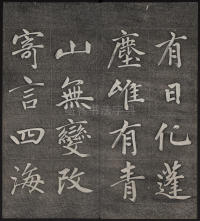 有日化蓬
塵唯有青
山無變改
寄言四海